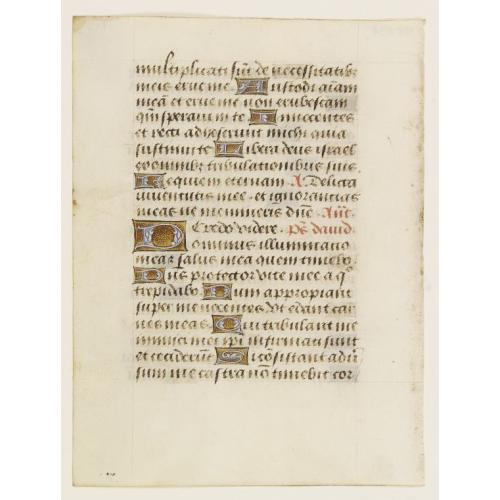 multiplicati sūt de necessitatibꝫ
meis erue me. Custodi aīam
meā et erue me non erubescam
qm̄ speraui in te. Innocentes
et recti adheserunt michi quia
sustinui te. Libera deus israel
ex omnibꝫ tribulationibus suis.
Requiem eternam. A. Delicta
iuuentutis mee et ignorantias
meas ne memineris dn̄e. Añt.
Credo videre. Ps̄ dauid.
Dominus illuminatio
mea ⁊ salus mea quem timebo.
Dn̄s protector vite mee a q°
trepidabo. Dum appropiant
super me nocentes vt edant car
nes meas. Qui tribulant me
inimici mei ipi infirmati sunt
et ceciderūt. Si cōsistant adūs
sum me castra nō timebit cor